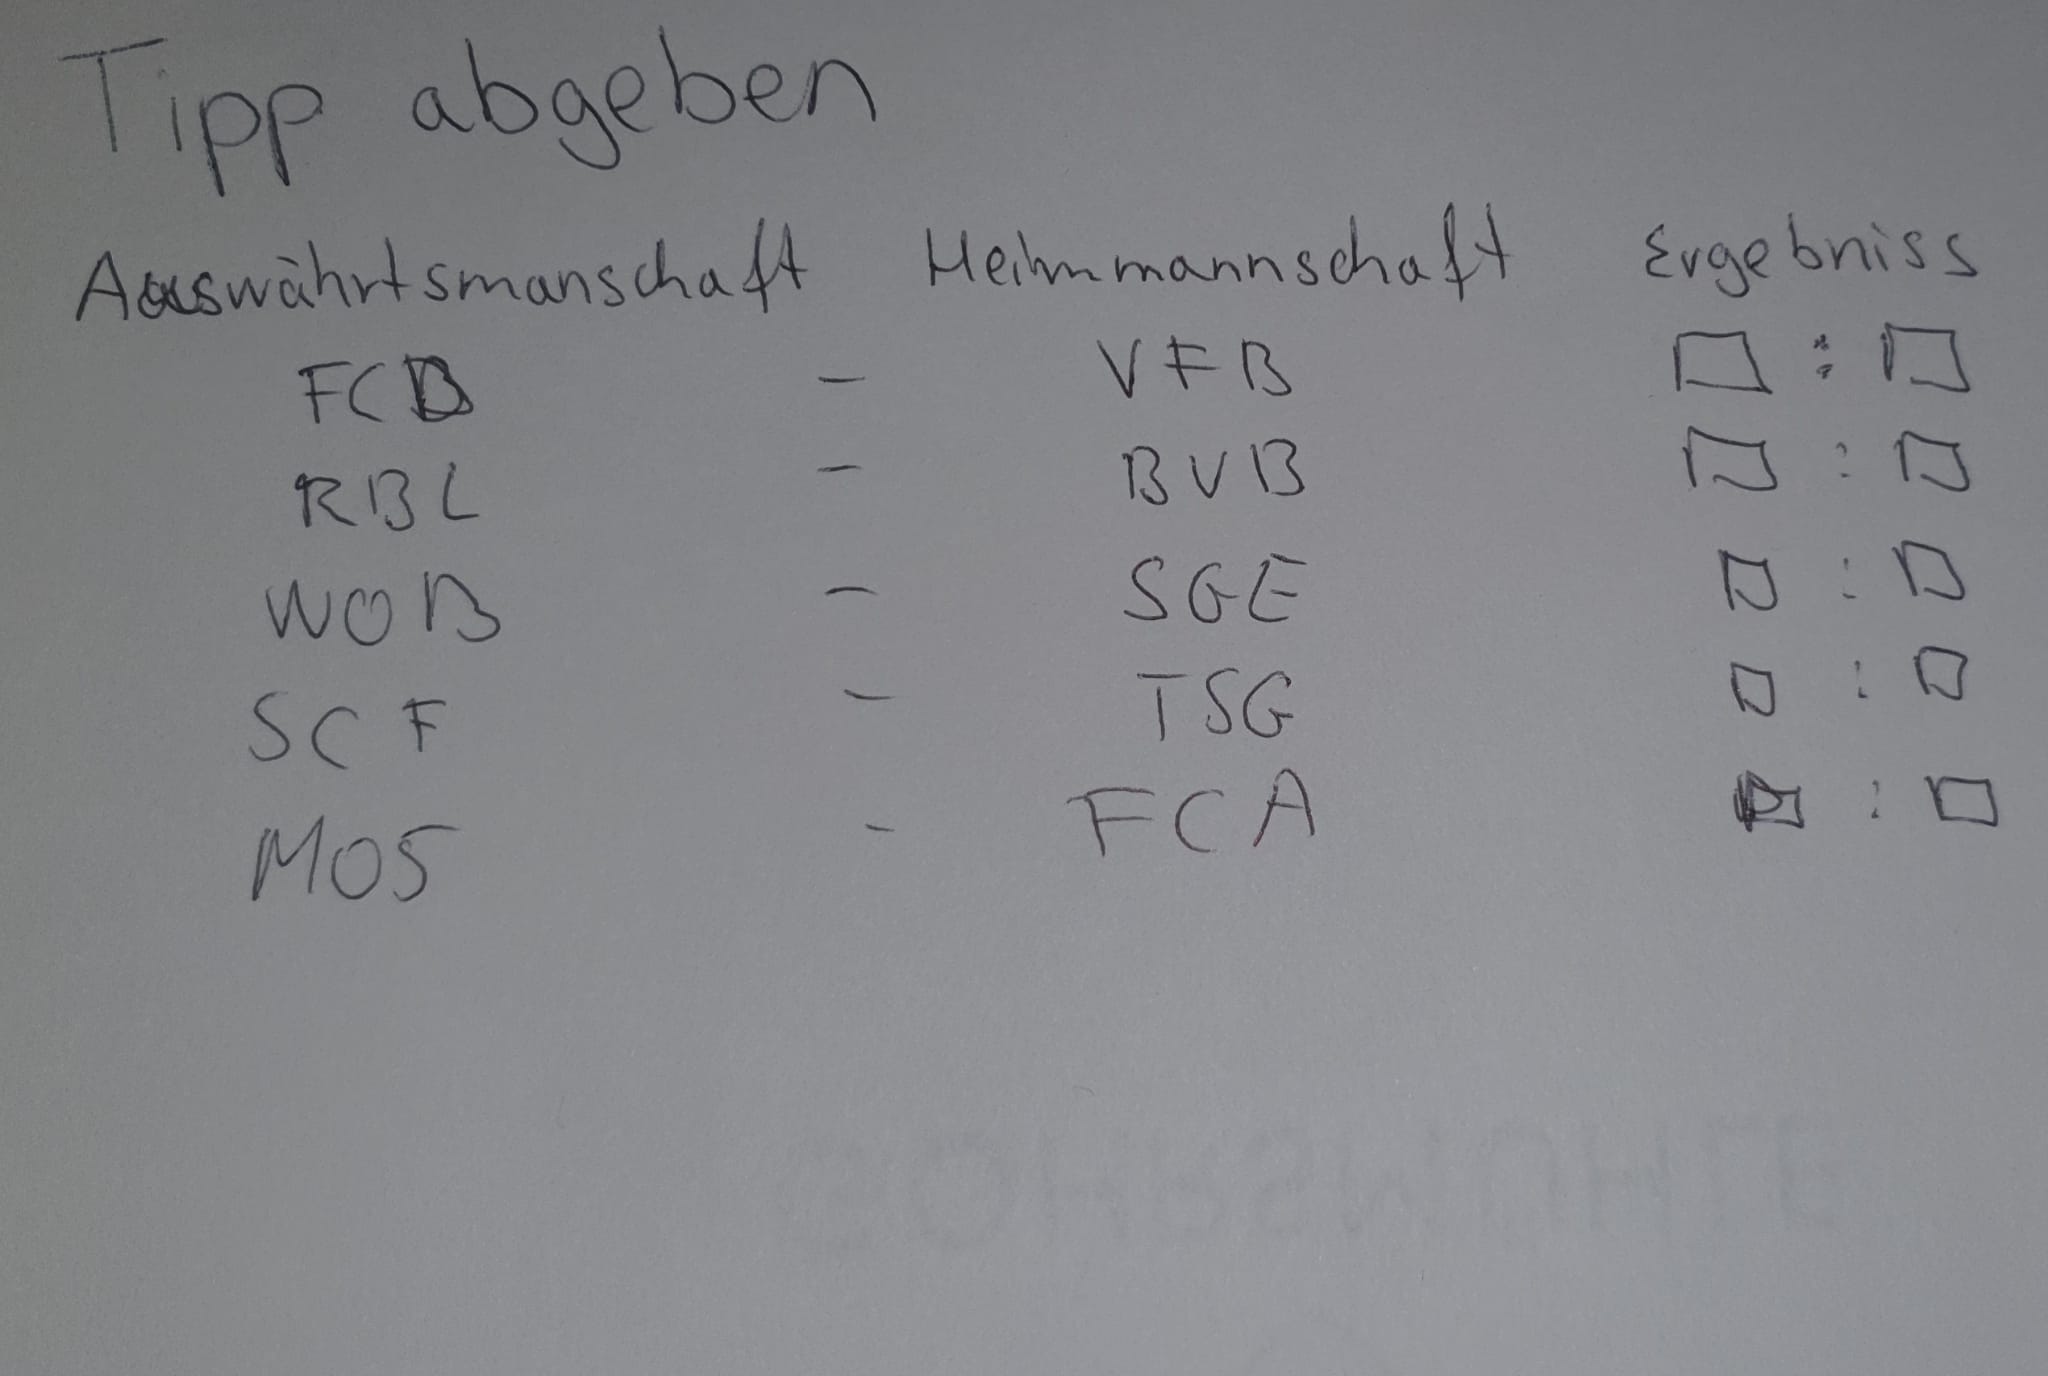 Tipp abgeben
Auswährtsmanschaft Heimmannschaft Ergebniss
FCB - VFB :
RBL - BVB :
WOB - SGE :
SCF - TSG :
M05 - FCA :